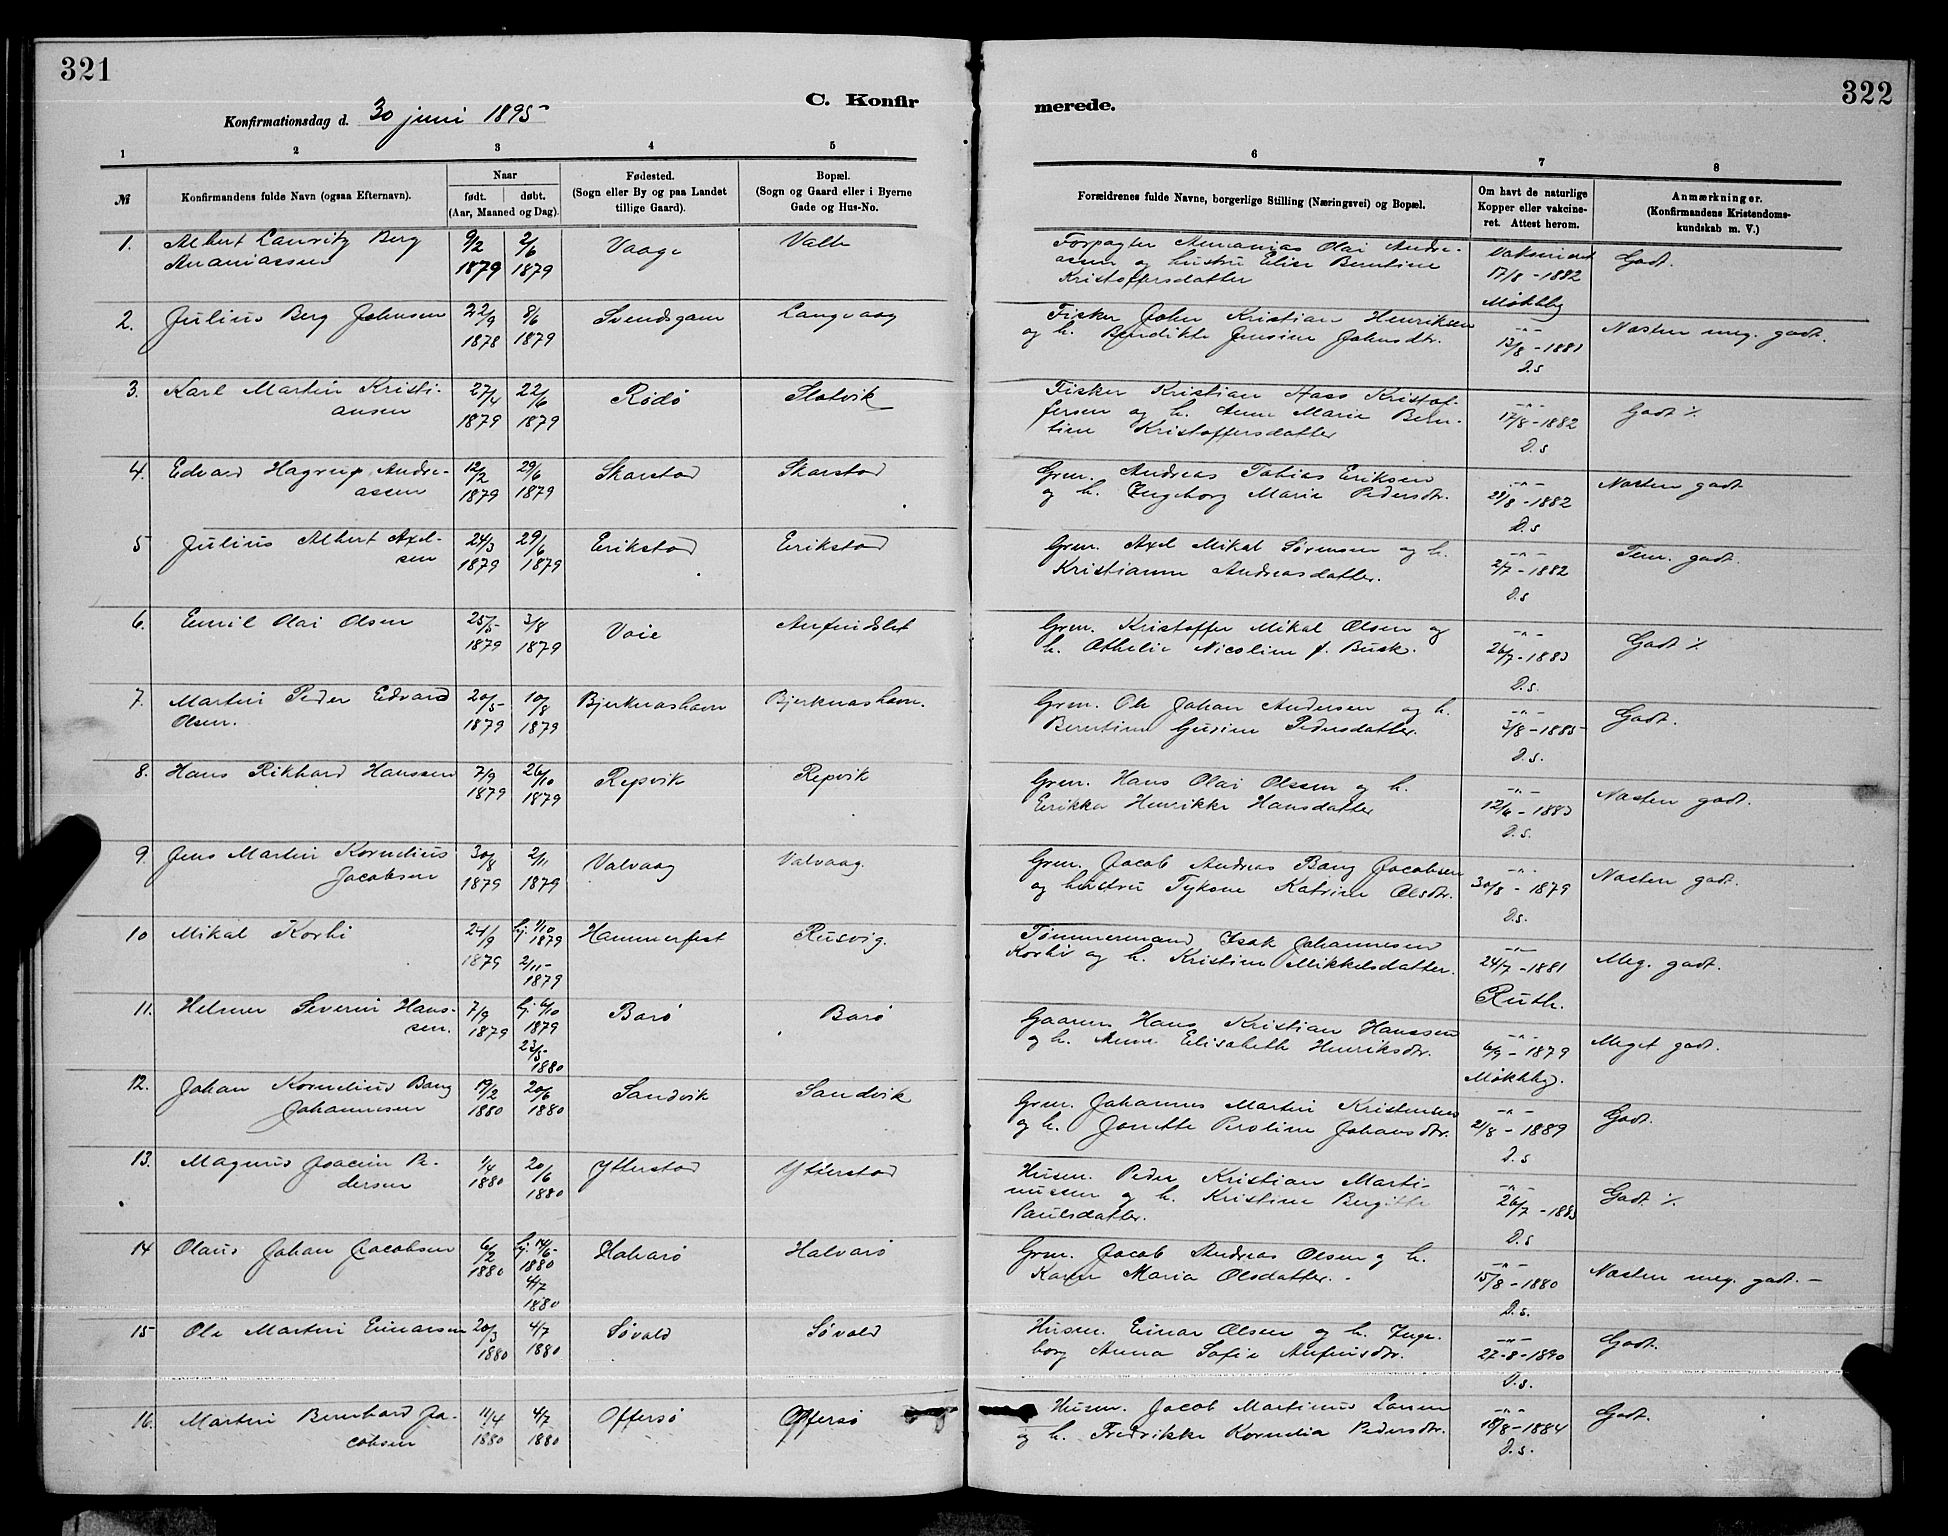 321
C. Konfir
Konfirmationsdag d. 30 juni 1895
1 2 3 4 5
№ Konfirmandens fulde Navn (ogsaa Efternavn). Naar født. døbt. (Aar, Maaned og Dag). Fødested. (Sogn eller By og paa Landet tillige Gaard). Bopæl. (Sogn og Gaard eller i Byerne Gade og Hus-No.
1. Albert Lauritz Berg 9/2 2/6 Vaage Valle
Ananiassen 1879 1879
2. Julius Berg Johnsen 22/9 8/6 Svendsgam Langvaag
1878 1879
3. Karl Martin Kristi- 27/4 22/6 Rødø Slotvik
ansen 1879 1879
4. Edvard Hagrup Andre- 12/2 29/6 Skarstad Skarstad
assen 1879 1879
5 Julius Albert Axel- 24/3 29/6 Erikstad Erikstad
sen 1879 1879
6. Emil Olai Olsen 25/5 3/8 Voie Anfindslet
1879 1879
7. Martin Peder Edvard 20/5 10/8 Bjerknashavn Bjerknashavn.
Olsen. 1879 1879
8. Hans Rikhard Hanssen 7/9 26/10 Repvik Repvik
1879 1879
9. Jens Martin Kornelius 30/8 2/11 Valvaag Valvaag.
Jacobsen 1879 1879
10 Mikal Korbi 24/9 hj. 1/10 Hammerfest Rusvig.
1879 1879
2/11-
1879
11. Helmer Severin Hans- 7/9 hj. 6/10 Barø Barø
sen. 1879 1879
23/5-
1880
12. Johan Kornelius Bang 19/2 20/6 Sandvik Sandvik
Johannesen 1880 1880
13. Magnus Joacim Pe- 1/4 20/6 Ytterstad Ytterstad
dersen 1880 1880
14 Olaus Johan Jacobsen 6/2 hj. 14/5- Halvarø Halvarø
1880 1880
4/7
1880
15 Ole Martin Einarsen 20/3 4/7 Søvald Søvald
1880 1880
16. Martin Bernhard Ja- 11/4 4/7 Offersø Offersø
cobsen 1880 1880
322
merede.
6 7 8
Forældrenes fulde Navne, borgerlige Stilling (Næringsvei) og Bopæl. Om havt de naturlige Kopper eller vakcineret. Attest herom. Anmærkninger. (Konfirmandens Kristendomskundskab m. V.)
Forpagter Annanias Olai Andre- Vaksineret Godt.
assen og hustru Elise Berntine 17/8-1882
Kristoffersdatter Møkhby
Fisker John Kristian Henriksen -"- Nasten meg. godt.
og h. Bendikte Jensine Johnsdtr. 13/8-1881
D.s
Fisker Kristian Hass Kristof- -"- Godt ٪
fersen og h. Anne Marie Bern- 17/8-1882
tine Kristoffersdatter D.s
Grm. Andreas Tobias Eriksen -"- Nasten godt
og h. Ingeborg Marie Pedersdtr. 22/8-1882
D.s
Grm. Axel Mikal Sørensen og h. -"- Tem. godt.
Kristianne Andreasdatter. 2/7-1882
D.s
Grm. Kristoffer Mikal Olsen og -"- Godt ٪
h. Othelie Nicoline f. Busk. 26/7-1883
D.s.
Grm. Ole Johan Andersen og h. -"- Godt.
Berntine Gusine Pedersdatter. 3/8-1885
D.s.
Grm. Hans Olai Olssen og h. -"- Nasten godt.
Erikka Henrikke Hansdatter 12/6-1883
D.s.
Grm. Jacob Andreas Bang Jacobsen -"- Nasten godt.
og hustru Tykone Katrine Olsdtr. 30/8-1879
D.s.
Tømmermand Isak Johannesen -"- Meg. godt.
Korbi og h. Kristine Mikkelsdatter. 24/7-1881
Ruth.
Gaarm. Hans Kristian Hanssen -"- Meget godt.
og h. Anne Elisabeth Henriksdtr. 6/9-1879
Møkhby.
Grm. Johannes Martin Kristensen -"- Godt.
og h. Jonette Peroline Johansdtr. 21/8-1889
D.s
Husm. Peder Kristian Marti- -"- Godt ٪
nussen og h. Kristine Bergitte 26/7-1883
Paulsdatter. D.s
Grm. Jacob Andreas Olsen og h. -"- Nasten meg. godt. -
Karen Maria Olsdatter. 15/8-1880
D.s.
Husm. Einar Olsen og h. Inge- -"- Godt.
borg Anna Sofie Anfinsdtr. 27-8-1890
D.s.
Husm. Jacob Martinus Larsen -"- Godt.
og h. Fredrikke Kornelia Pedersdtr. 18/8-1884
D.s.